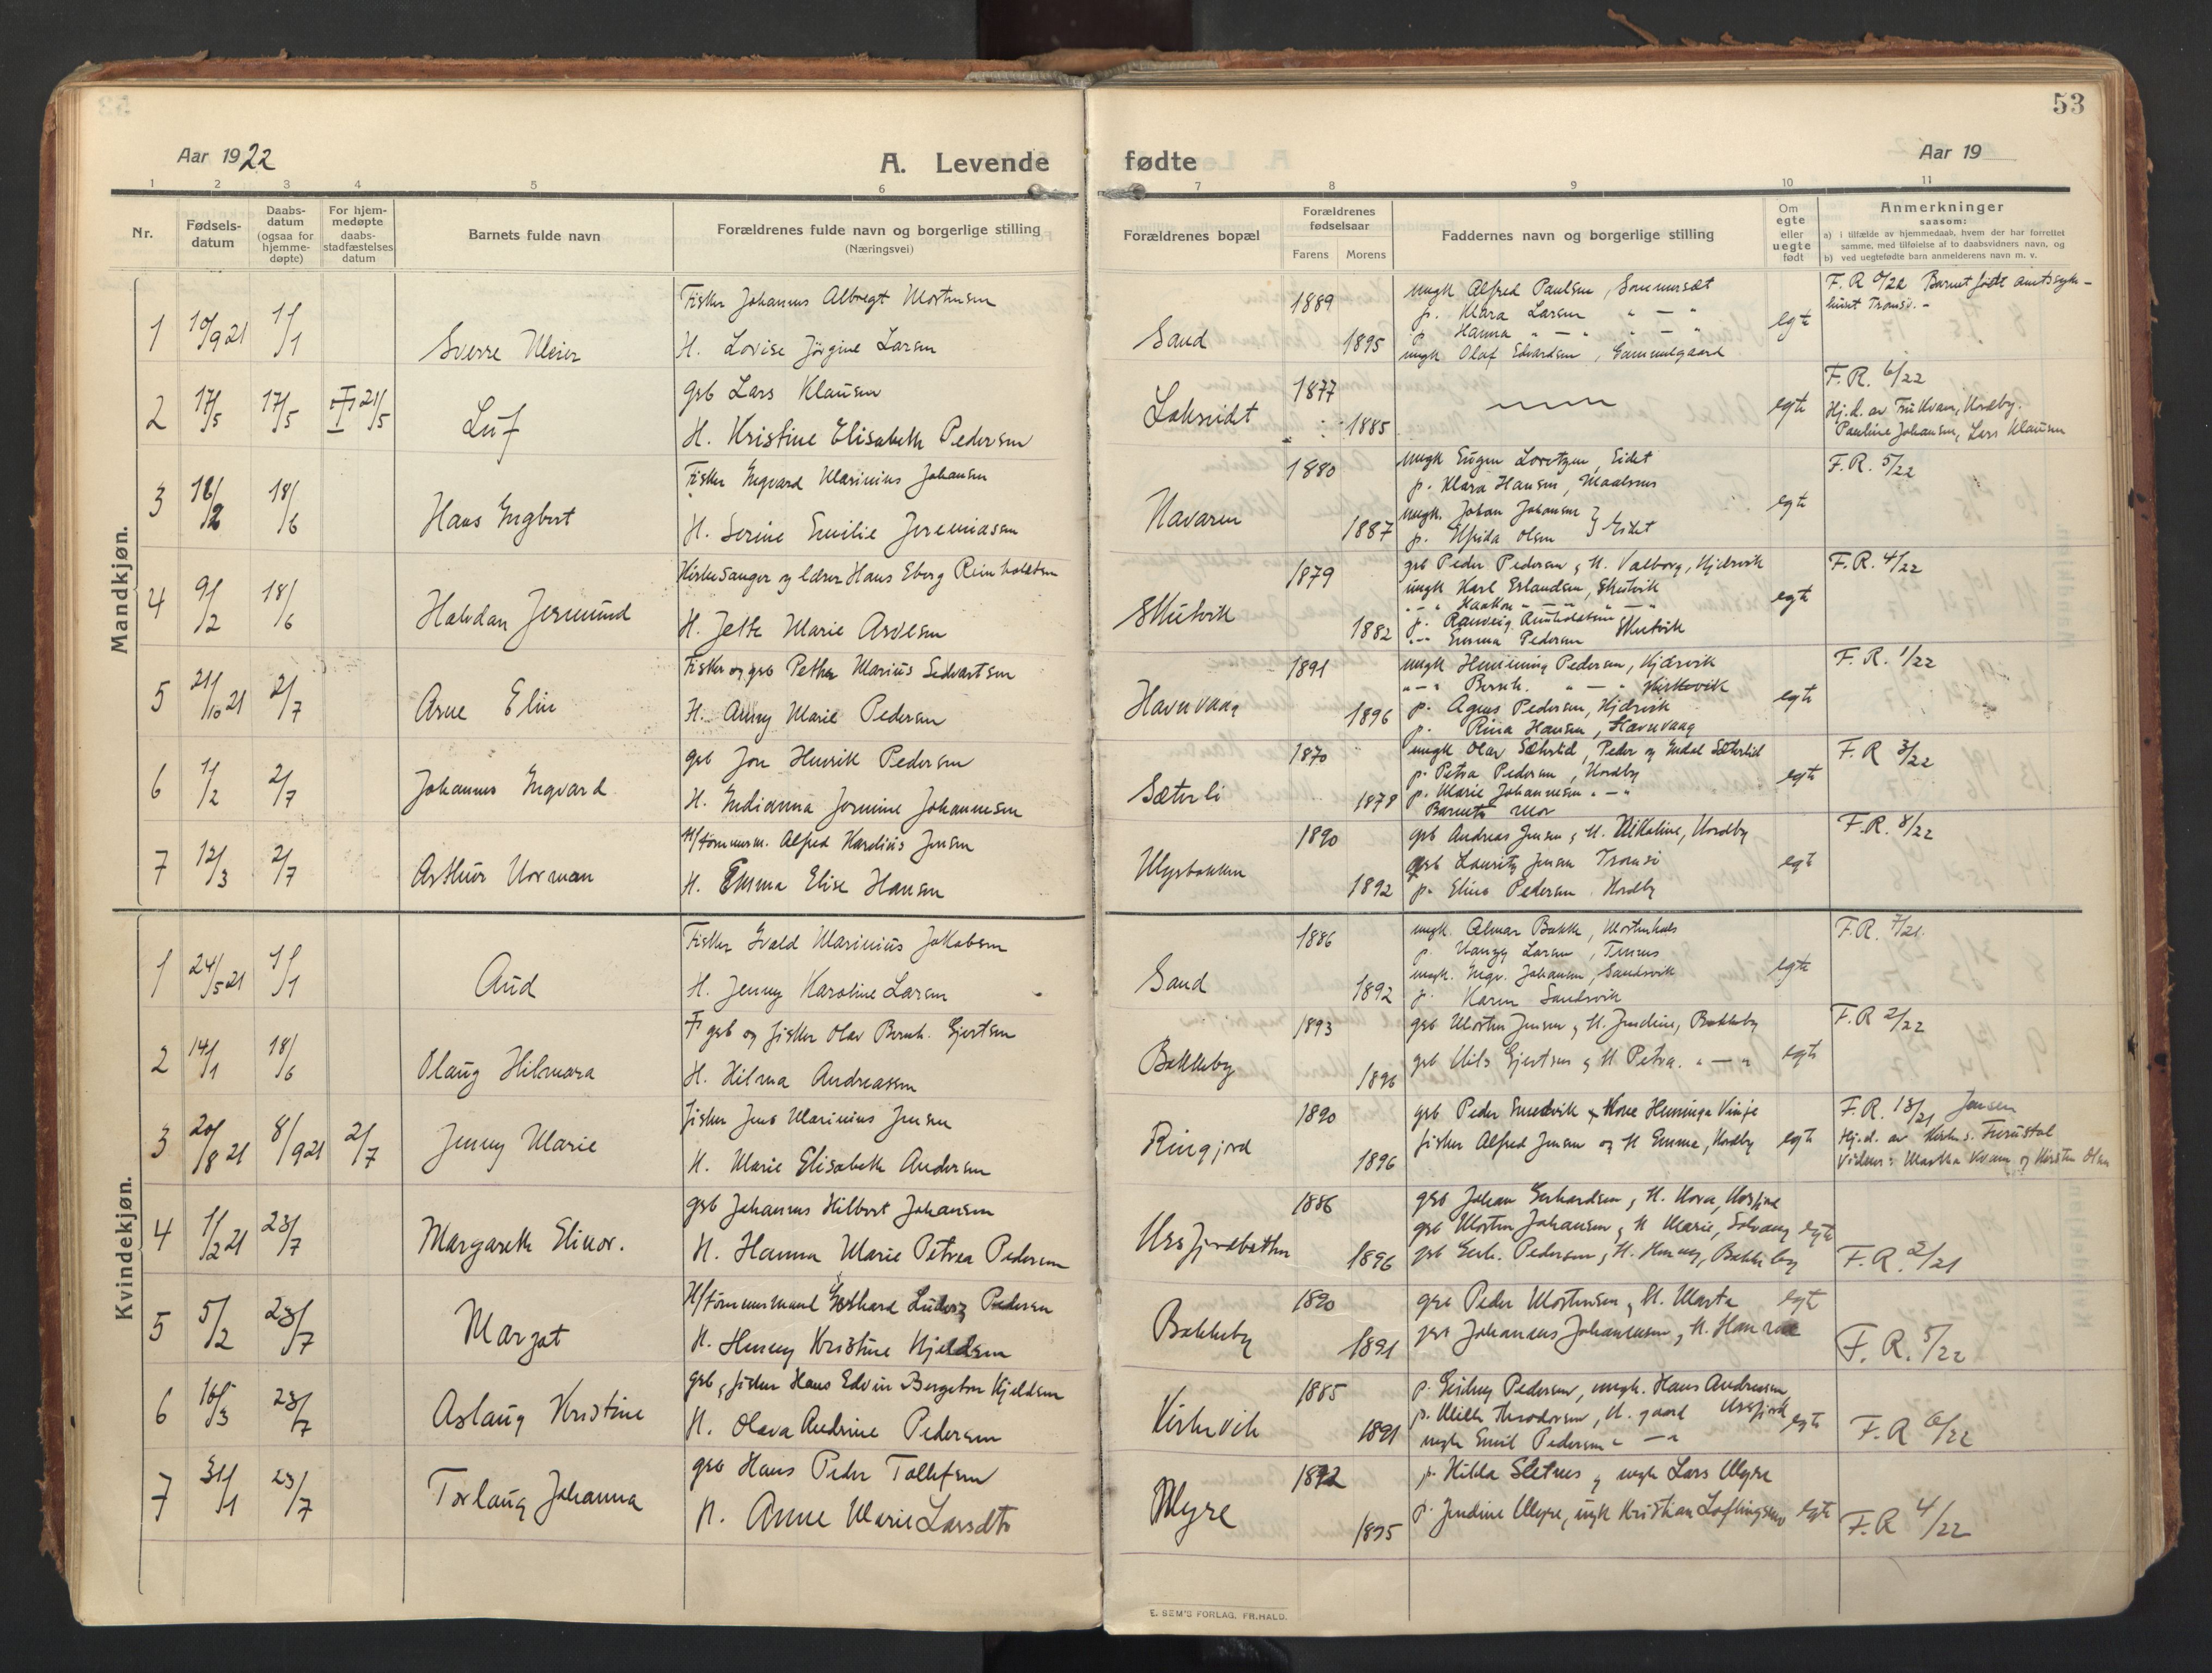 53
Aar 1922
A. Levende fødte
Aar 19
1 2 3 4 5 6 7 8 9 10 11
Nr.
Fødselsdatum
Daabsdatum (ogsaa for hjemmedøpte)
For hjemmedøpte daabsstadfæstelses datum
Barnets fulde navn
Forældrenes fulde navn og borgerlige stilling (Næringsvei)
Forældrenes bopæl
Forældrenes fødselsaar
Farens Morens
Faddernes navn og borgerlige stilling
Om egte eller uegte født
Anmerkninger
saasom:
a) i tilfælde av hjemmedaab, hvem der har forrettet samme, med tilføielse af to daabsvidners navn, og
b) ved uegtefødte barn anmelderens navn m. v.
Mandkjøn.
1 10/9 21 1/1 Sverre Meier
Fisker Johannes Albregt Mortensen
H. Lovise Jørgine Larsen
Sand 1889 1895
ungk Alfred Paulsen, Sommersæt
p. Klara Larsen " — "
p. Hanna " — " " — "
ungk Olaf Edvardsen, Gammelgaard
egte
F. R 9/22 Barnet født amtssyke-
huset Tromsø. -
2 17/5 17/5 21/5 Luf
gsb Lars Klausen
H. Kristine Elisabeth Pedersen
Lakseidt 1877 1885
egte
F. R. 6/22
Hj. d. av Fru Kvam, Nordby.
Pauline Johansen, Lars Klausen
3 18/2 18/6 Hans Ingbert
Fisker Ingvard Marinius Johansen
H. Serine Emilie Jeremiassen
Navaren 1880 1887
ungk Eugen Loretzen, Eidet
p. Klara Hansen, Maalsnes
ungk. Johan Johansen
p. Elfrida Olsen } Eidet
egte
F. R. 5/22
4 9/2 18/6 Halvdan Jermund
Kirkesanger og lærer Hans Eberg Reinholdtsen
H. Jette Marie Arvesen
Skutvik 1879 1882
gsb Peder Pedersen & H. Valborg, Kjærvik
ungk Karl Erlandsen, Skutvik
" - " Haakon " — " " — "
p. Ranveig Reinholdtsen
" - " Emma Pedersen Skutvik
egte
F. R. 4/22
5 21/10 21 2/7 Arne Elin
Fisker og gsb Pether Marius Sedvartsen
H. Anny Marie Pedersen
Havnvaag 1891 1896
ungk Henning Pedersen, Kjærvik
" - " Bernh. " — " Kirkevik
p. Agnes Pedersen, Kjærvik
p. Rina Hansen, Havnvaag
egte
F. R. 1/22
6 1/2 2/7 Johannes Ingvard
gsb Jon Henrik Pedersen
H. Indianna Jermine Johannesen
Sæterli 1870 1878
ungk Olav Sæterlid, Peder og Endal Sæterlid
p. Petra Pedersen, Nordby
p. Marie Johannesen " — "
Barnets Mor
egte
F. R 3/22
7 12/3 2/7 Arthur Norman
H/tømmerm. Alfred Kardius Jensen
H. Emma Elise Hansen
Myrbakken 1890 1892
gsb Andreas Jensen & H. Nikoline, Nordby
gsb Lauritz Jensen Tromsø
p. Elino Pedersen. Nordby
egte
F. R. 8/22
Kvindekjøn.
1 24/5 21 1/1 Aud
Fisker Ivald Marinius Jakobsen
H. Jenny Karoline Larsen
Sand 1886 1892
ungk. Almar Bakke, Mortenhals
p. Nanny Larsen,
ungk. Ingv. Johansen, Sandsvik
p. Karen Sandsvik
egte
F. R. 7/21.
2 14/1 18/6 Olaug Hilmara
F gsb og fisker Olav Bernh. Gjertsen
H. Hilma Andreassen
Bakkeby 1893 1896
gsb Morten Jensen & H. Jendine, Bakkeby
gsb Nils Gjertsen & H Petra. " — "
egte
F. R 2/22
3 20/8 21 8/9 21 2/7 Jenny Marie
fisker Jens Marinius Jensen
H. Marie Elisabeth Andersen
Ringjord 1890 1896
gsb Peder Smedvik & Kone Henninga Vinje
fisker Alfred Jensen og H Emma, Nordby
egte
F. R. 13/21 Jensen
Hj. d. av Kirkes. Furustøl
Vidner: Martha Kvam og Kirsten Olsen
4 1/2 21 23/7 Margareth Elinor.
gsb Johannes Hilbert Johansen
H. Hanna Marie Petrea Pedersen
Ursfjordbotten 1886 1896
gsb Johan Gerhardsen & H. Nora,
gsb Morten Johansen & H Marie, Solvang
gsb Gerh. Pedersen & H. Henny, Bakkeby
egte
F. R. 2/21
5 5/2 23/7 Margot
H/tømmermand Gerhard Ludvig Pedersen
H. Henny Kristine Kjeldsen
Bakkeby 1890 1891
gsb Peder Mortensen & H. Marta
gsb Johannes Johannesen & H. Hanna
egte
F. R. 5/22
6 16/3 23/7 Aslaug Kristine
gsb & fisker Hans Edvin Bergeton Kjeldsen
H. Olava Andrine Pedersen
Kirkevik 1885 1891
p. Pedersen, ungk. Hans Andreassen,
p. Milla Theodorsen, N. gaard Ursfjord
ungk Emil Pedersen " — "
egte
F. R 6/22
7 31/1 23/7 Torlaug Johanna
gsb Hans Peder Tollefsen
H. Anne Marie Larsdtr
Myre 1892 1895
p. Hilda Sletnes & ungk Lars Myre
p. Jendine Myre, ungk Kristian
egte
F. R 4/22
E. SEM'S FORLAG, FR.HALD.